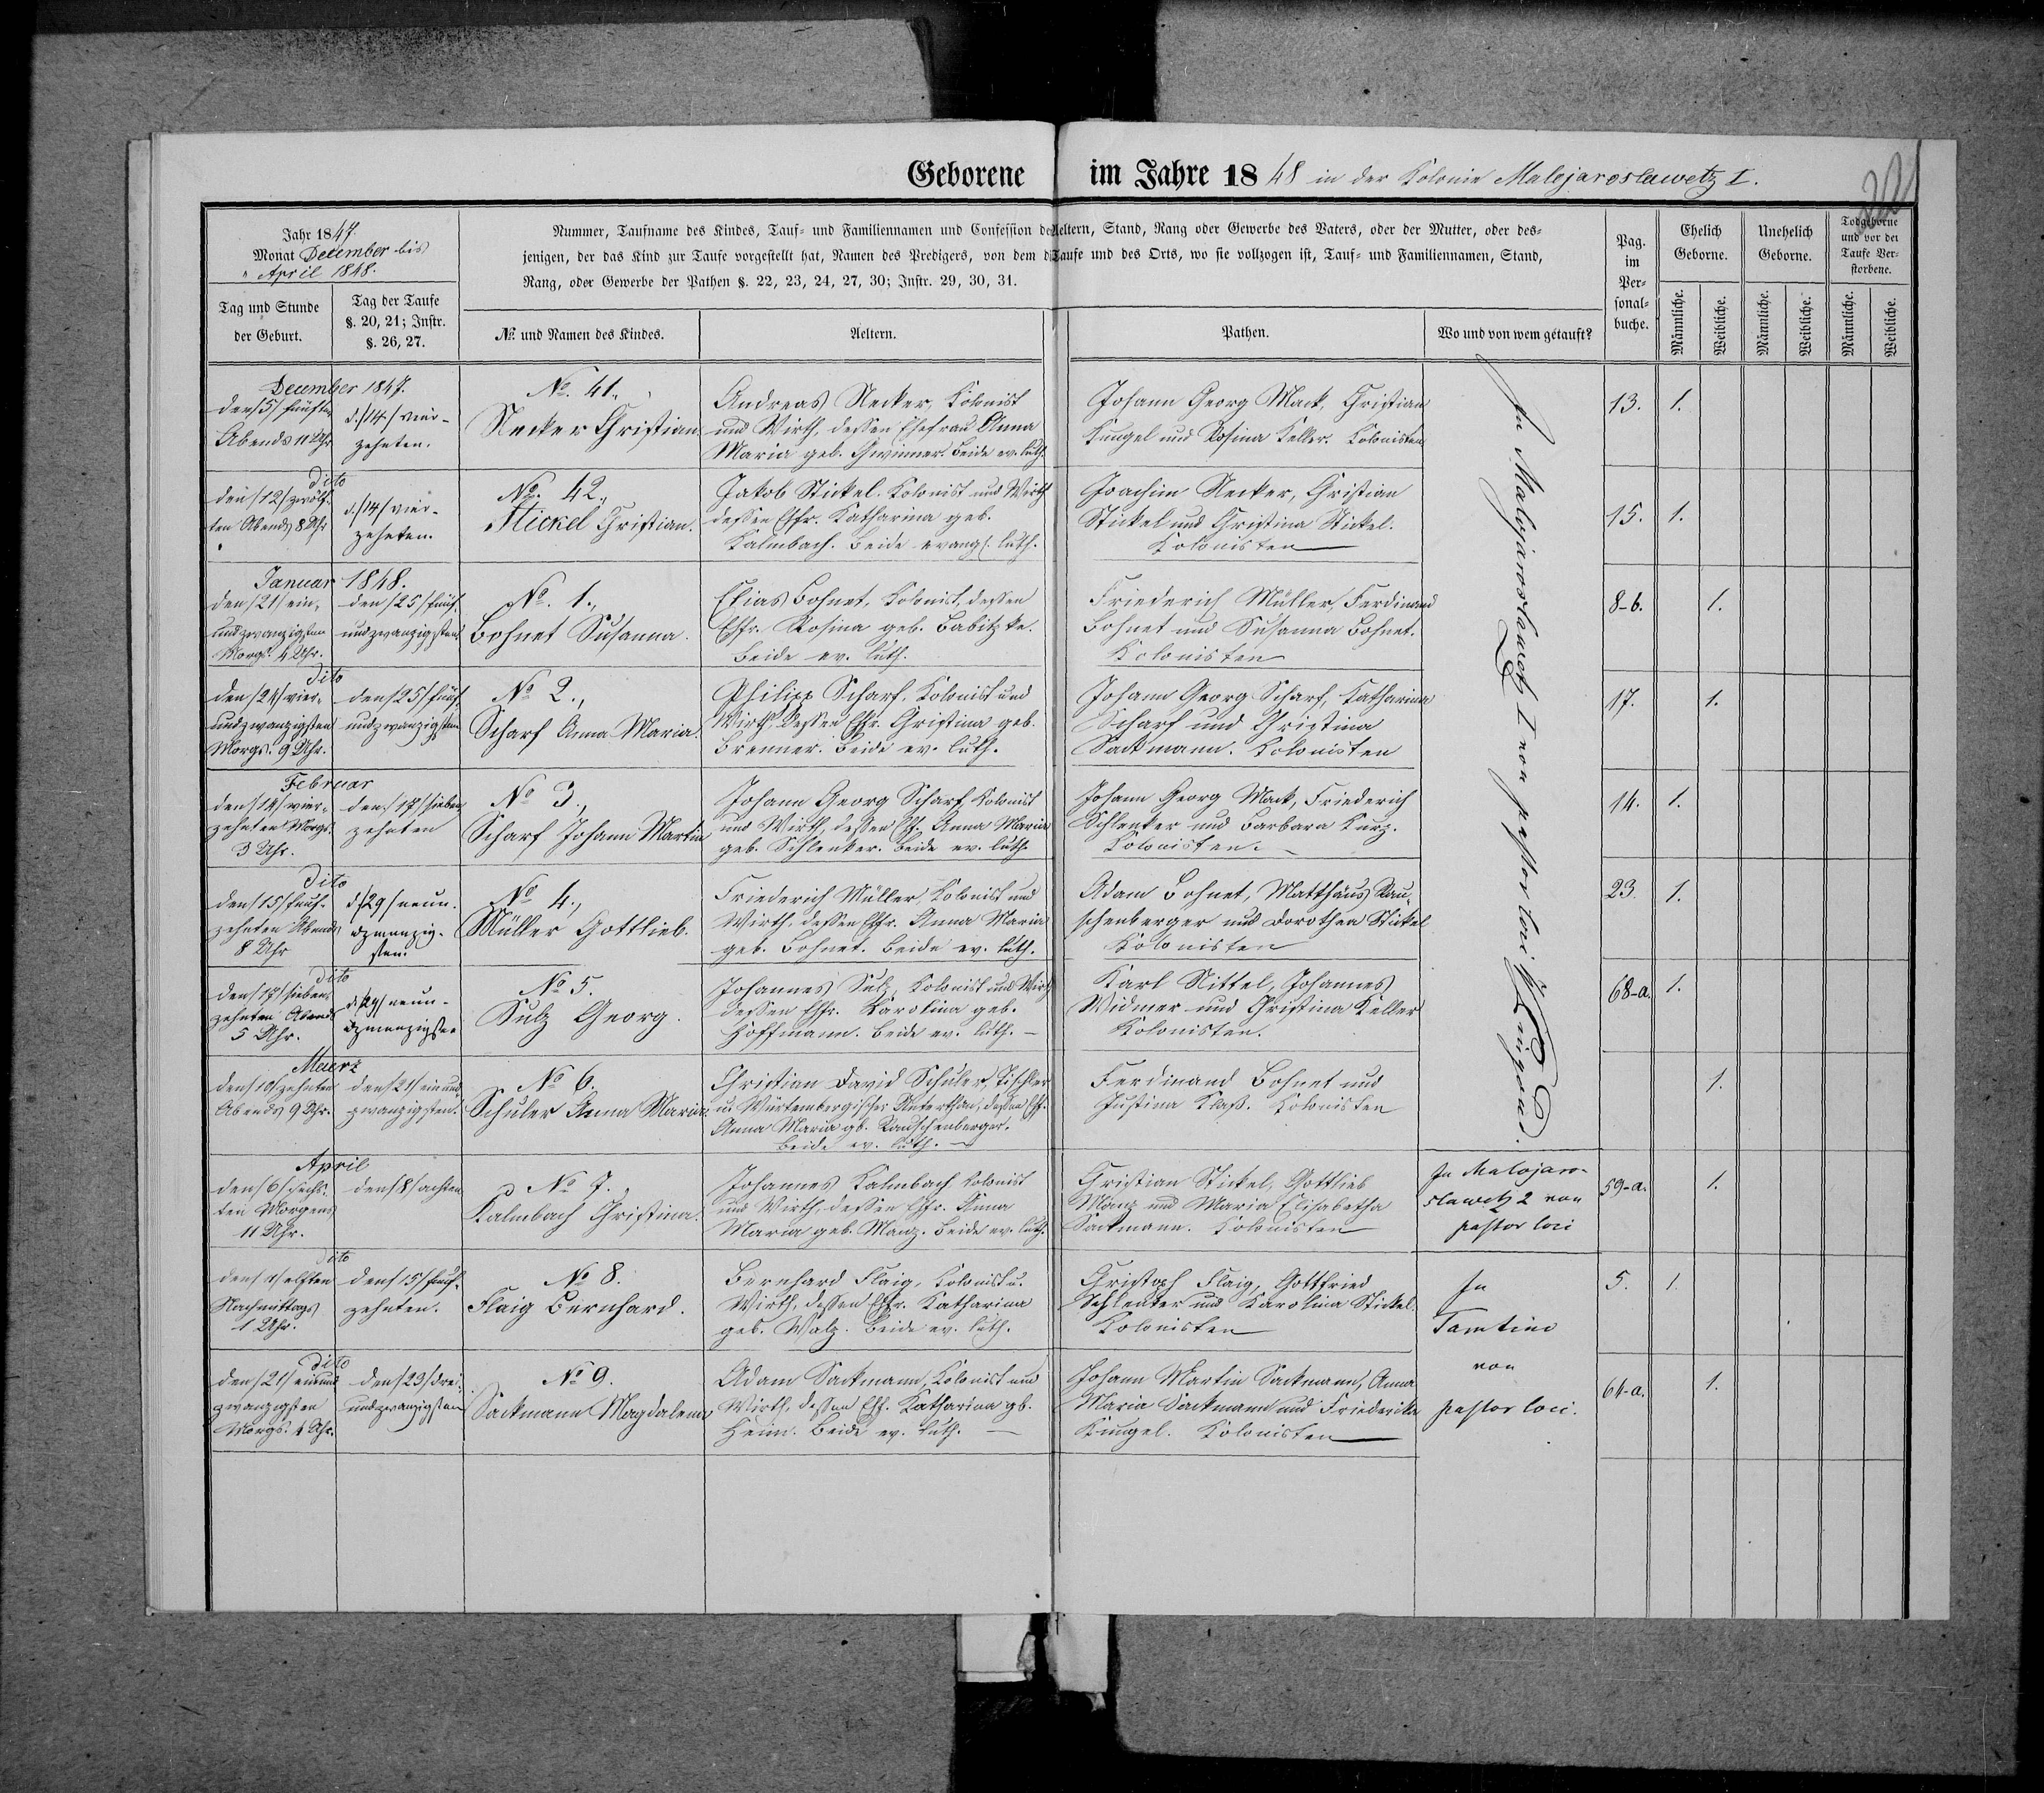 Geborene im Jahre 1848 in der Kolonie Malojaroslawetz I.
22
Jahr 1847.
Monat December bis
" April 1848.
Tag und Stunde
der Geburt.
Tag der Taufe
§. 20, 21; Instr.
§. 26, 27.
Nummer, Taufname des Kindes, Tauf- und Familiennamen und Confession der Aeltern, Stand, Rang oder Gewerbe des Vaters, oder der Mutter, oder des-
jenigen, der das Kind zur Taufe vorgestellt hat, Namen des Predigers, von dem d. Taufe und des Orts, wo sie vollzogen ist, Tauf- und Familiennamen, Stand,
Rang, oder Gewerbe der Pathen §. 22, 23, 24, 27, 30; Instr. 29, 30, 31.
№ und Namen des Kindes.
Aeltern.
Pathen.
Wo und von wem getauft?
Pag.
im
Per-
sonal-
buche.
Ehelich
Geborne.
Unehelich
Geborne.
Todgeborne
und vor der
Taufe Ver-
storbene.
Männliche.
Weibliche.
Männliche.
Weibliche.
Männliche.
Weibliche.
December 1847.
den /5/ fünften
Abends 11 Uhr
d. /14/ vier-
zehnten.
No. 41.,
Necker Christian
Andreas Necker, Kolonist
und Wirth, dessen Ehefrau Anna
Maria geb. Gwinner. Beide ev. luth.
Johann Georg Mack, Christian
Kungel und Rosina Keller. Kolonisten
13. 1.
dito
den /12/ zwölf-
ten Abends 8 Uhr
d. /14/ vier-
zehnten.
No. 42.,
Stickel Christian.
Jakob Stickel. Kolonist und Wirth
dessen Ehfr. Katharina geb.
Kalmbach. Beide evangl. luth.
Joachim Necker, Christian
Stickel und Christina Stickel.
Kolonisten
15. 1.
Januar 1848.
den /21/ ein-
undzwanzigsten
Morgs. 4 Uhr.
den /25/ fünf-
undzwanzigsten
No. 1.,
Bohnet Susanna.
Elias Bohnet, Kolonist, dessen
Ehfr. Rosina geb. Babitzke.
Beide ev. luth.
Friederich Müller, Ferdinand
Bohnet und Susanna Bohnet.
Kolonisten
8-b. 1.
dito
den /24/ vier-
undzwanzigsten
Morgs. 9 Uhr.
den /25/ fünf-
undzwanzigsten
No 2.,
Scharf Anna Maria.
Philipp Scharf, Kolonist und
Wirth dessen Ehfr. Christina geb.
Brenner. Beide ev. luth.
Johann Georg Scharf, Katharina
Scharf und Christina
Sackmann. Kolonisten
17. 1.
Februar
den /14/ vier-
zehnten Morgs.
3 Uhr.
den /17/ sieben-
zehnten
No 3.,
Scharf Johann Martin
Johann Georg Scharf, Kolonist
und Wirth, dessen Ehf. Anna Maria
geb. Schlenker. Beide ev. luth.
Johann Georg Mack, Friederich
Schlenker und Barbara Kurz.
Kolonisten.
14. 1.
Dito
den /15/ fünf-
zehnten Abends
8 Uhr
d. /29/ neun-
dzwanzig-
sten.
No 4.,
Müller Gottlieb.
Friederich Müller, Kolonist und
Wirth, dessen Ehfr. Anna Maria
geb. Bohnet. Beide ev. luth.
Adam Bohnet, Matthäus Rau-
schenberger und Dorothea Stickel
Kolonisten
23. 1.
dito
den /17/ sieben-
zehnten Abends
5 Uhr.
d. /29/ neun-
dzwanzigsten
No 5.
Sulz Georg.
Johannes Sulz, Kolonist und Wirth
dessen Ehfr. Karolina geb.
Hoffmann. Beide ev. luth.
Karl Nittel, Johannes
Widmer und Christina Keller
Kolonisten.
68-a. 1.
Maerz
den /10/ zehnten
Abends 9 Uhr.
den /21/ einund-
zwanzigsten.
No 6.
Schuler Anna Maria.
Christian David Schuler, Tischler
u. Würtembergischer Unterthan, dessen Ehf.
Anna Maria gb. Rauschenberger.
Beide ev. luth.
Ferdinand Bohnet und
Justina Klaß. Kolonisten
1.
In Malojaroslawetz I von pastor loci
April
den /6/ sechs-
ten Morgens
11 Uhr.
den /8/ achten
No 7.
Kalmbach Christina.
Johannes Kalmbach Kolonist
und Wirth, dessen Ehfr. Anna
Maria geb. Manz. Beide ev. luth.
Christian Stickel, Gottlieb
Manz und Maria Elisabetha
Sackmann. Kolonisten
In Malojaro-
slawetz 2 von
pastor loci
59-a. 1.
dito
den elften
Nachmittags
1 Uhr.
den /15/ fünf-
zehnten.
No 8.
Flaig Bernhard.
Bernhard Flaig, Kolonist u.
Wirth, dessen Ehfr. Katharina
geb. Walz. Beide ev. luth.
Christoph Flaig, Gottfried
Schlenker und Karolina Stickel.
Kolonisten
In
Tarutino
von
pastor loci.
5. 1.
dito
den /21/ einund-
zwanzigsten
Morgs. 4 Uhr.
den /23/ drei-
undzwanzigsten
No 9.
Sackmann Magdalena
Adam Sackmann, Kolonist und
Wirth, dessen Ehf. Katharina gb.
Heim. Beide ev. luth.
Johann Martin Sackmann, Anna
Maria Sackmann und Friederika
Kungel. Kolonisten
64-a. 1.